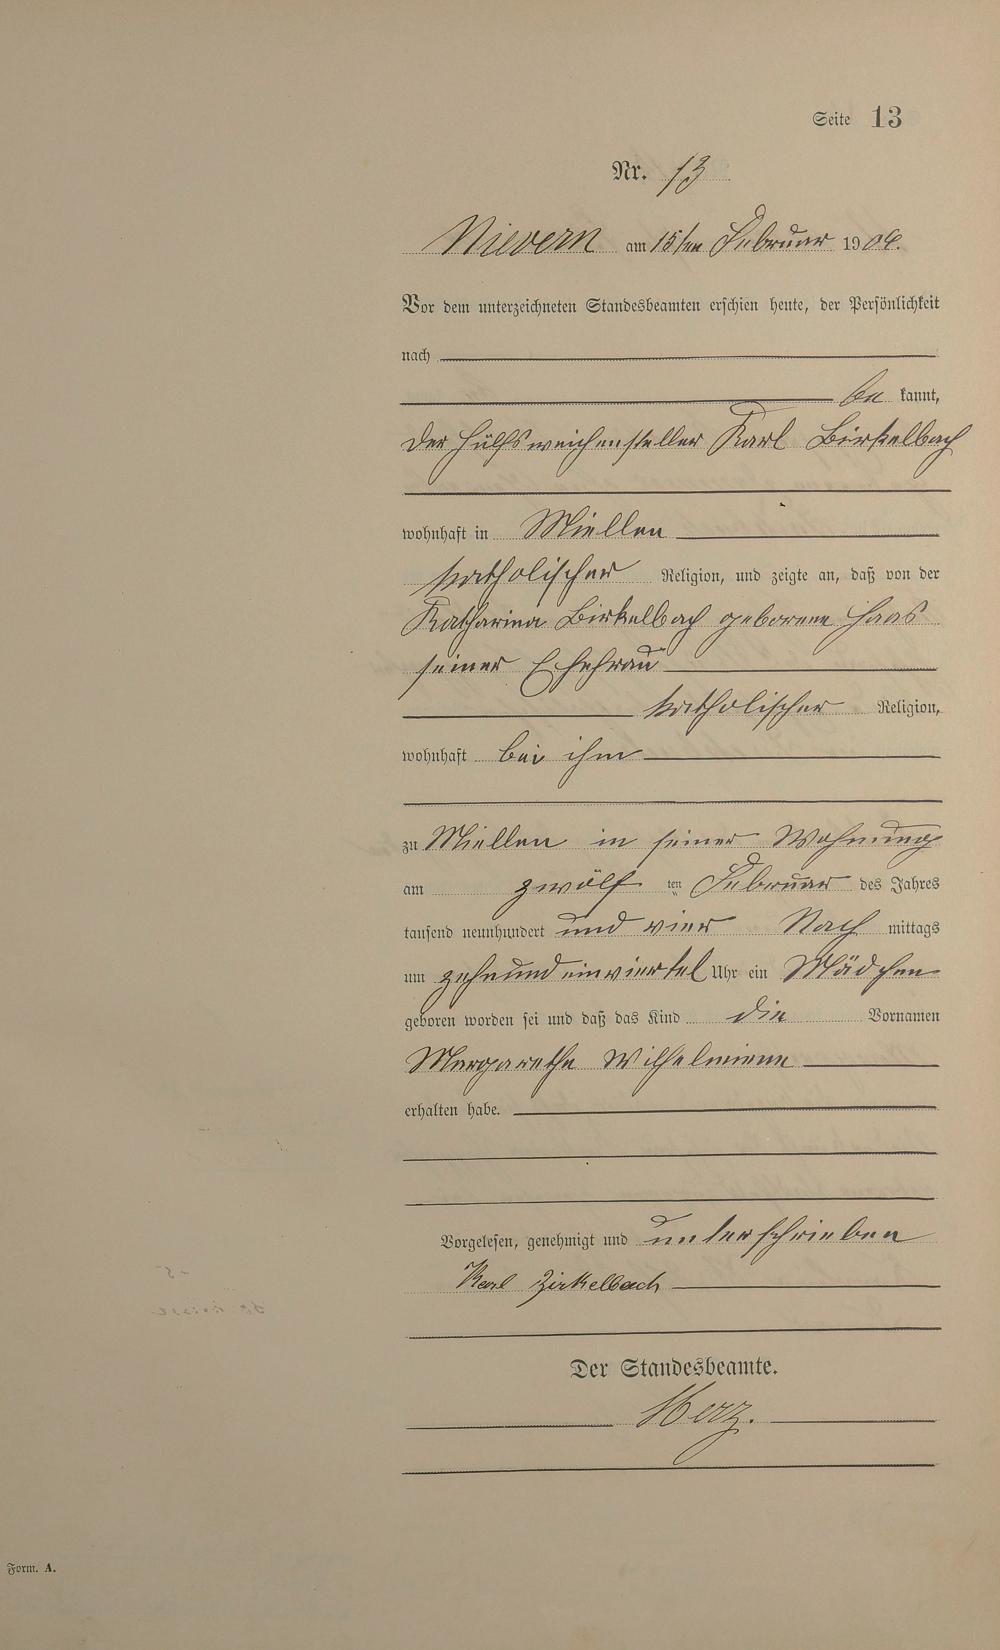 Seite 13
Nr. 13
Nievern am 15ten Februar 1904.
Vor dem unterzeichneten Standesbeamten erschien heute, der Persönlichkeit
nach
be kannt,
der Hülfsweichensteller Karl Birkelbach
wohnhaft in Miellen
katholischer Religion, und zeigte an, daß von der
Katharina Birkelbach geborene Haas
seiner Ehefrau
katholischer Religion,
wohnhaft bei ihm
zu Miellen in seiner Wohnung
am zwölf ten Februar des Jahres
tausend neunhundert und vier Nach mittags
um zehnundeinviertel Uhr ein Mädchen
geboren worden sei und daß das Kind die Vornamen
Margarethe Wilhelmine
erhalten habe.
Vorgelesen, genehmigt und unterschrieben
Karl Birkelbach
Der Standesbeamte.
Merz.
Form. A.